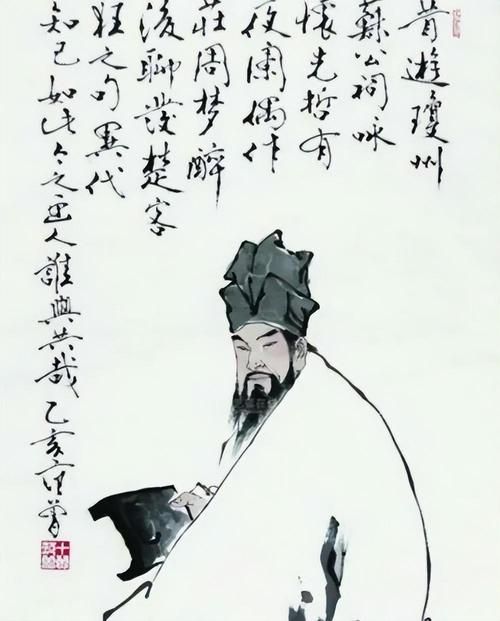 昔遊瓊州
蘇公祠咏
懷先哲有
夜闌偶作
莊周梦醉
後聊發楚客
狂之句異代
知己如此今之人誰與共哉乙亥范曾